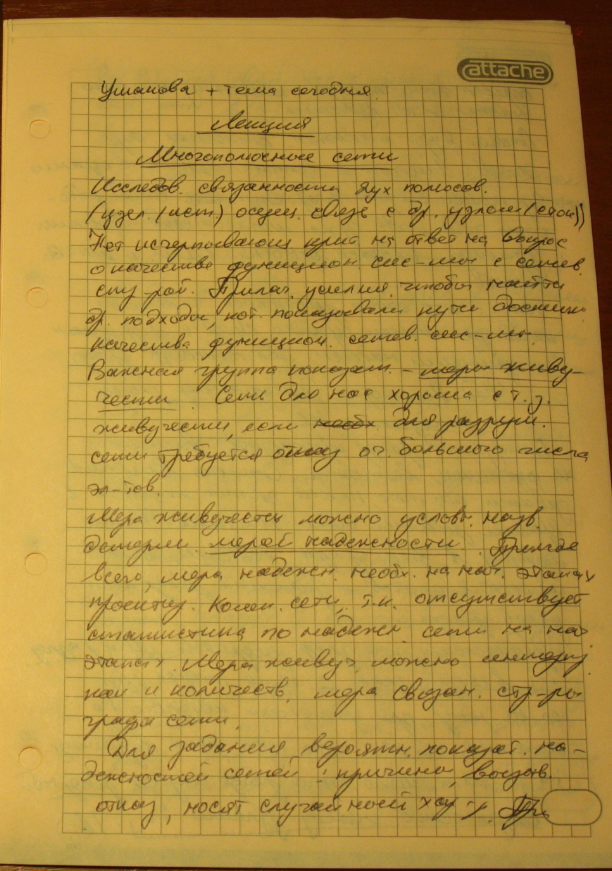 attache
Ушакова + тема сегодня
Лекция
Многополюсные сети
Исследов. связанности двух полюсов.
(узел (ист) осущ. связь с др. узлом (сток))
Нет исчерпывающих крит. на ответ на вопрос
о качестве функцион сис-мы с сетев.
стр-рой. Прилаг. усилия, чтобы найти
др. подходы, кот. показывали пути достиж.
качества функцион. сетев. сис-мы.
Важная группа показат. – меры живу-
чести. Сеть для нас хороша с т.з.
живучести, если для разруш.
сети требуется отказ от большого числа
эл-тов.
Мера живучести можно условн. назв.
детерм. мерой надежности. Прежде
всего, мера надежн. необх. на нач. этапах
проектир. комм. сети, т.к. отсутствует
статистика по надежн. сети на нач
этапах. Мера живуч. можно
как и количеств. мера связан. стр-ры
графа сети.
Для задания вероятн. показат. на-
дежностей сетей: причина, вызыв.
отказ, носят случайной хар-р. При